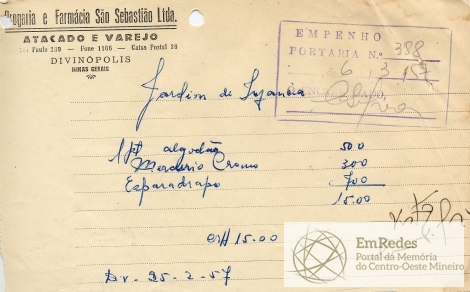 Drogaria e Farmácia São Sebastião Ltda.
ATACADO E VAREJO
Paulo 239 - Fone 1166 - Caixa Postal 39
DIVINÓPOLIS
MINAS GERAIS
EMPENHO
PORTARIA N.º 388
6 / 3 / 57
Jardim de Infancia
1 pt algodão 500
Mercurio Cromo 300
Esparadrapo 700
15.00
Cr$ 15.00
Div. 25-2-57
EmRedes
Portal da Memória
do Centro-Oeste Mineiro